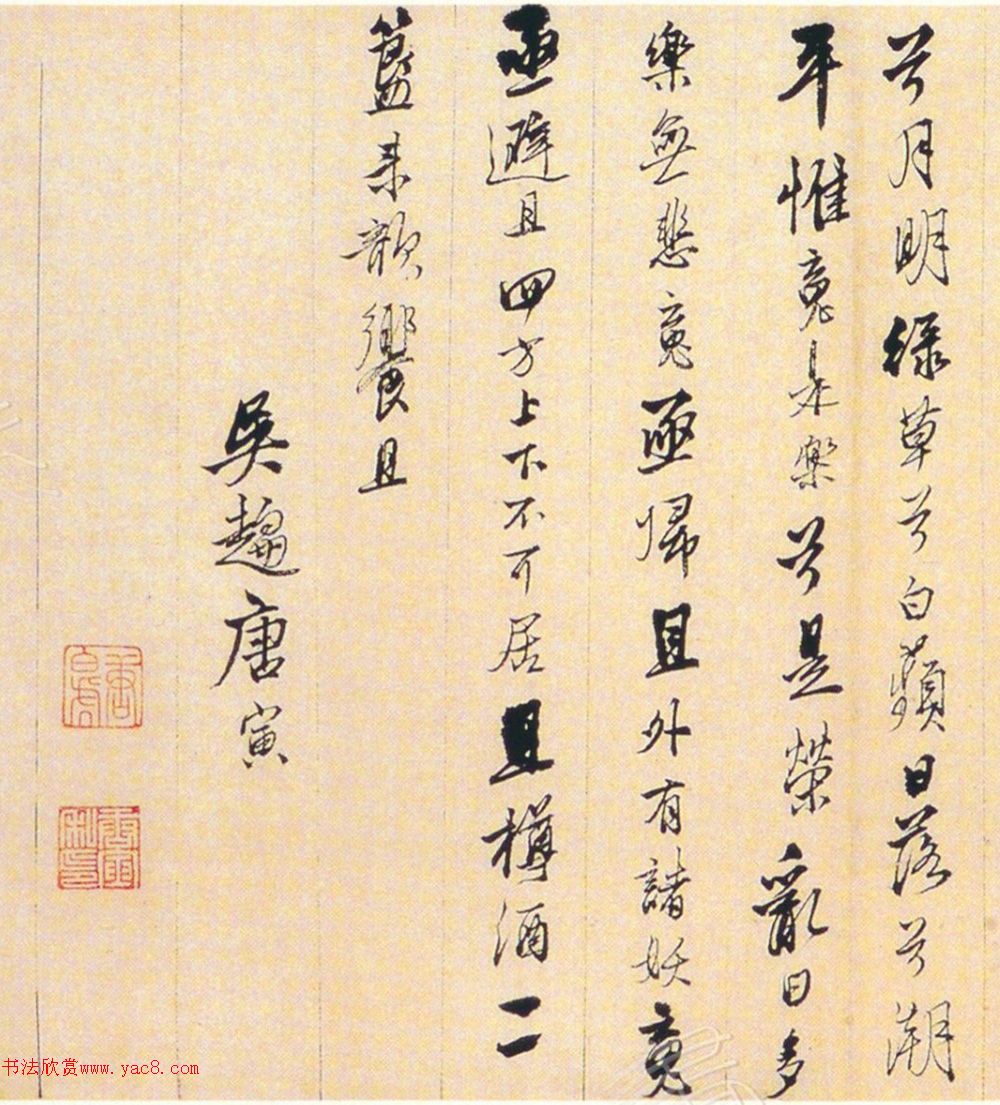 兮月明綠草兮白蘋日落兮潮
平惟魂是樂兮是榮亂曰多
樂無悲魂亟歸且外有諸妖魂
亟避且四方上下不可居且樽酒二
簋来歆饗且
吳趨唐寅
唐白虎
书法欣赏www.yac8.com